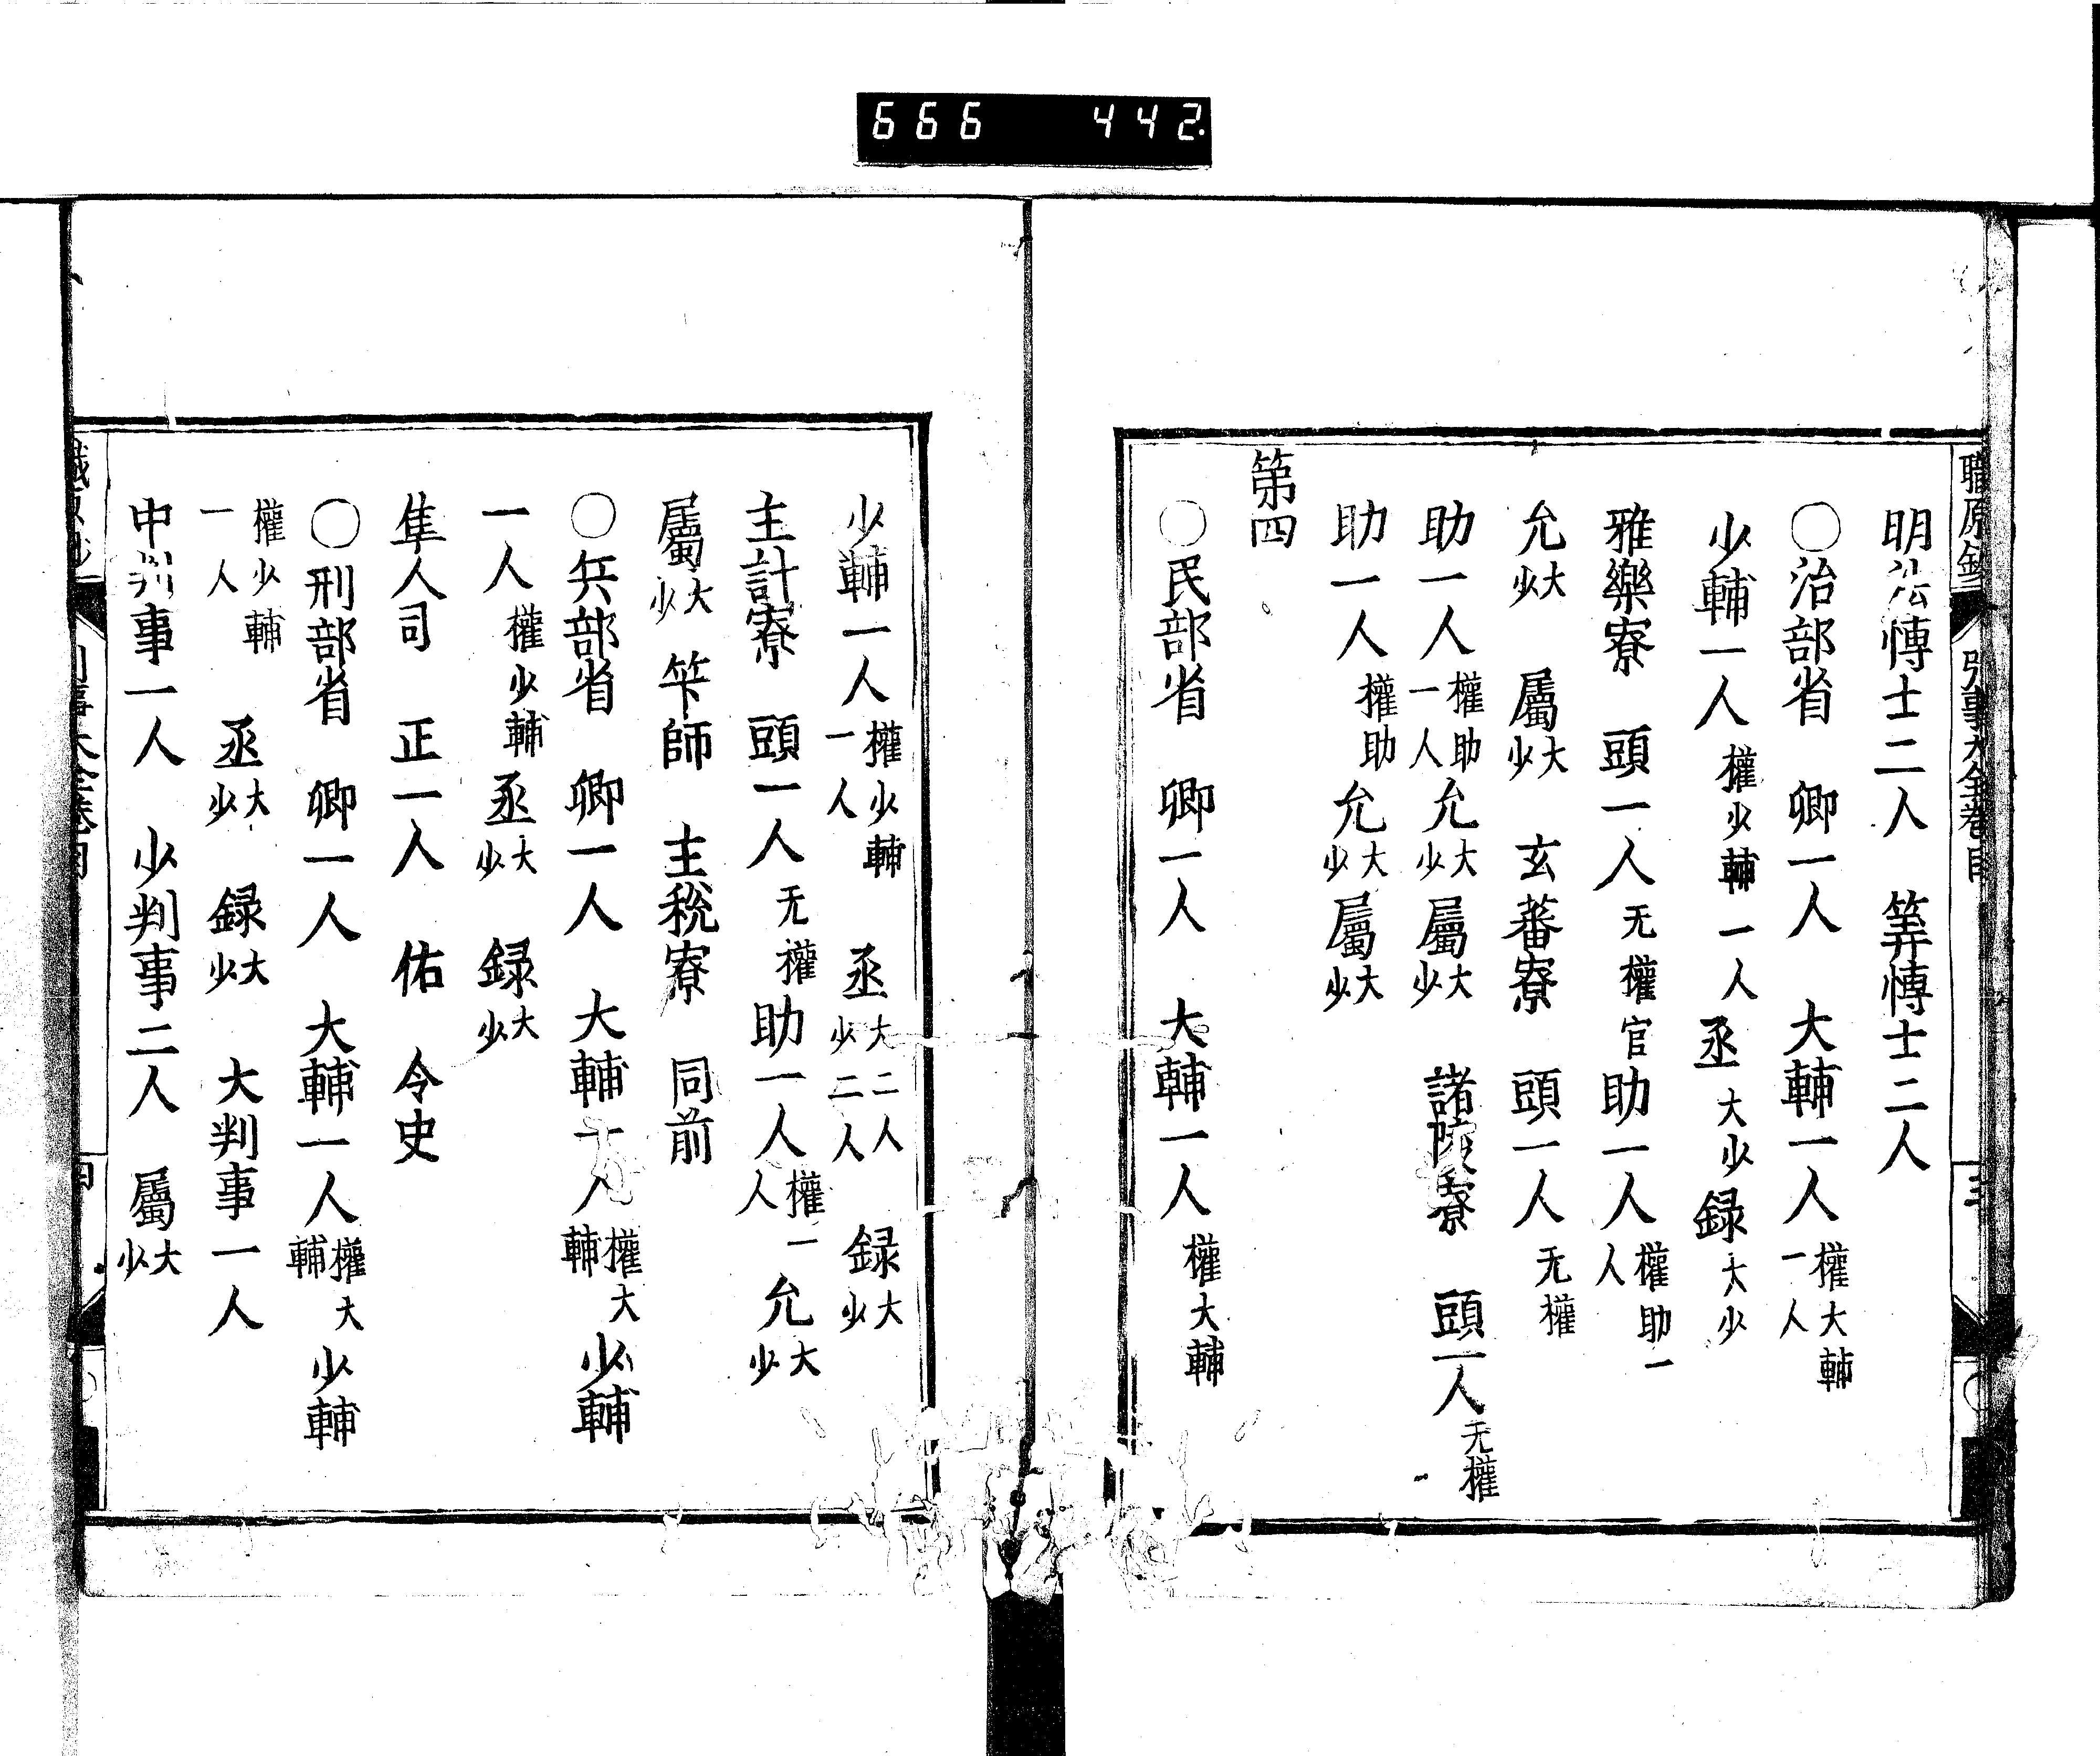 666 442
職原鈔 引事大全巻目 三
明法博士二人 筭博士二人
〇治部省 卿一人 大輔一人權大輔一人
少輔一人權少輔一人丞大少録大少
雅樂寮 頭一人无權官助一人權助一人
允大少 屬大少 玄蕃寮 頭一人无權
助一人權助一人允大少屬大少 諸陵寮 頭一人无權
助一人權助允大少屬大少
第四
〇民部省 卿一人 大輔一人權大輔
少輔一人權少輔一人 丞大二人少二人 録大少
主計寮 頭一人无權助一人權一人 允大少
屬大少 笇師 主税寮 同前
〇兵部省 卿一人 大輔一人權大輔少輔
一人權少輔丞大少 録大少
隼人司 正一人 佑 令史
〇刑部省 卿一人 大輔一人權大輔少輔
權少輔一人 丞大少 録大少 大判事一人
中判事一人 少判事二人 屬大少